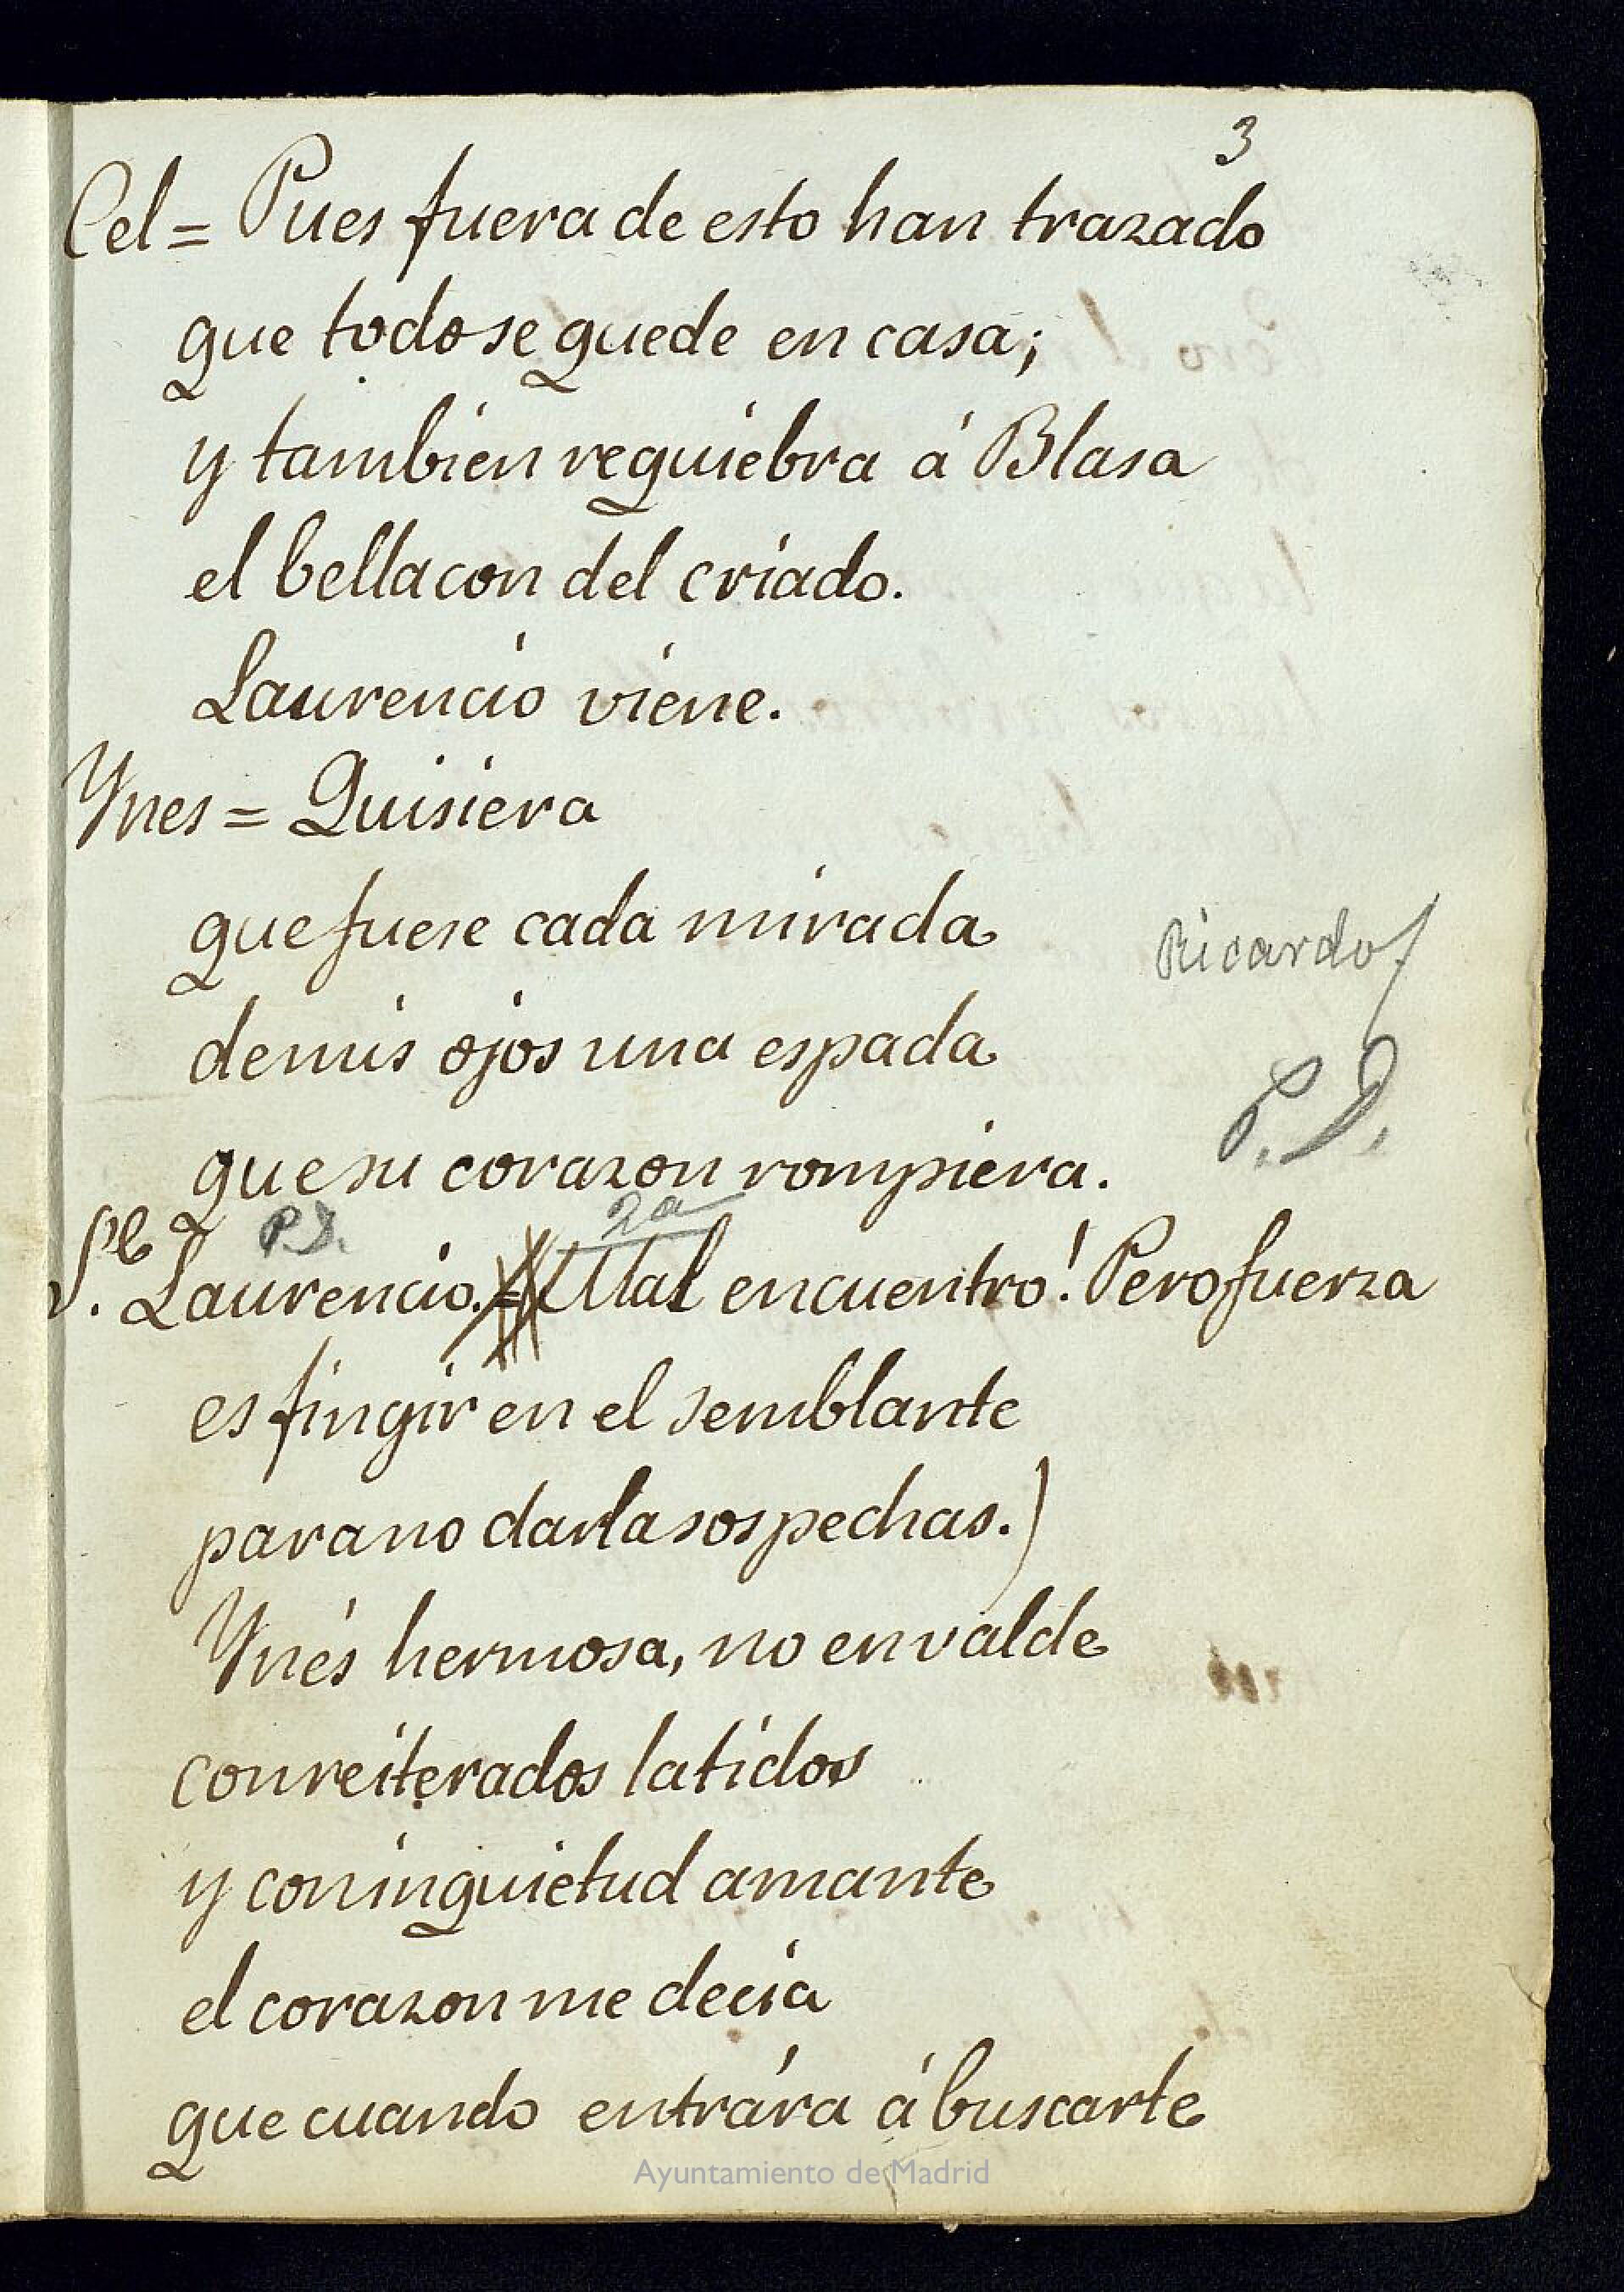 3
Cel = Pues fuera de esto han trazado
que todo se quede en casa;
y tambien requiebra á Blasa
el bellacon del criado.
Laurencio viene.
Ynes = Quisiera
que fuese cada mirada
Ricardo
de mis ojos una espada
P. D.
que su corazon rompiera.
P. D. 2a
Laurencio. = (Mal encuentro! Pero fuerza
es fingir en el semblante
para no darla sospechas.)
Ynés hermosa, no en valde
con reiterados latidos
y con inquietud amante
el corazon me decia
que cuando entrára á buscarte
Ayuntamiento de Madrid